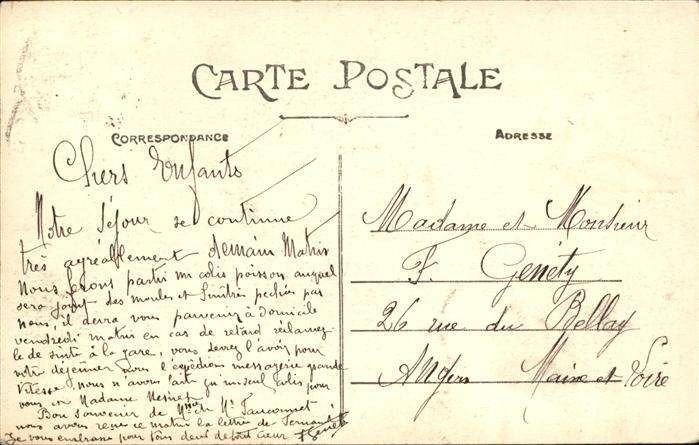 CARTE POSTALE
CORRESPONDANCE
ADRESSE
Chers Enfants
Notre Séjour se continue
très agréablement demain Matin
Nous ferons partir un colis poisson auquel
sera joint des moules et huîtres pechées par
nous, il devra vous parvenir à domicile
vendredi matin en cas de retard réclamez
le de suite à la gare, vous devez l'avoir pour
votre déjeuner nous l'expédions messagerie grande
Vitesse, nous n'avons fait qu'un seul colis pour
vous et Madame
Bon Souvenir de Mme et Mr Fauconnet
nous avons reçu ce matin la lettre de Fernand
Je vous embrasse pour tous deux de tout cœur
Madame et Monsieur
F. Genéty
26 rue du Bellay
Angers Maine et Loire